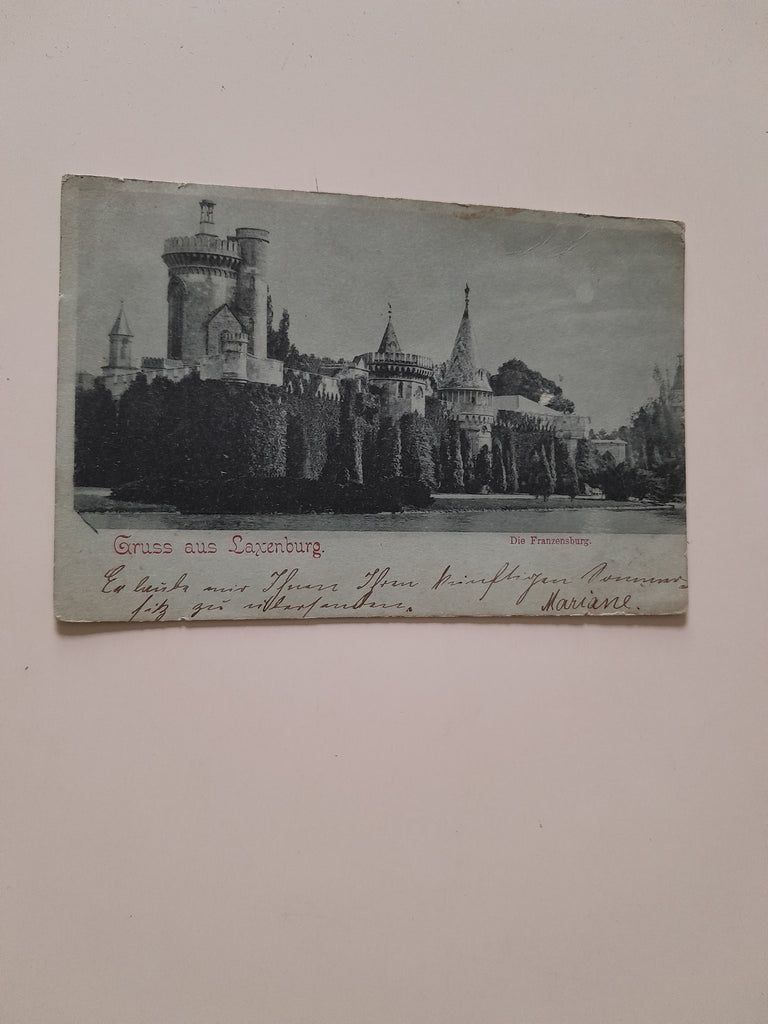 Gruss aus Laxenburg.
Die Franzensburg.
Erlaube mir Ihnen Ihren künftigen Sommer-
sitz zu übersenden.
Mariane.